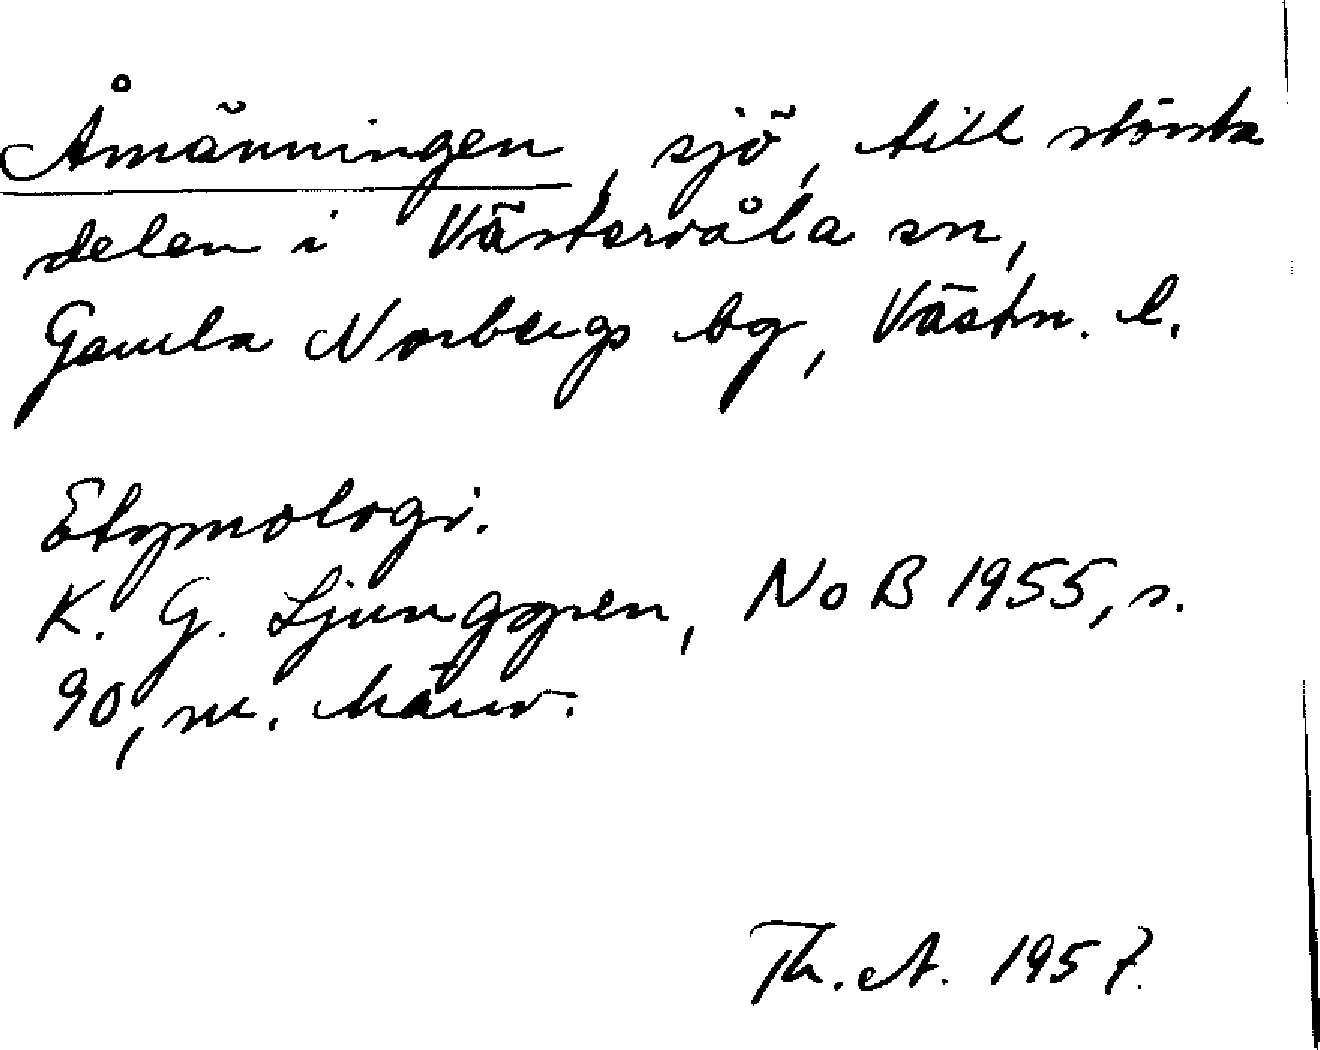 Åmänningen, sjö, till största
delen i Västervåla sn,
Gamla Norbergs bg, Västm. l.
Etymologi.
K. G. Ljunggren, NoB 1955, s.
90, m. hänv.
Th. A. 1957.